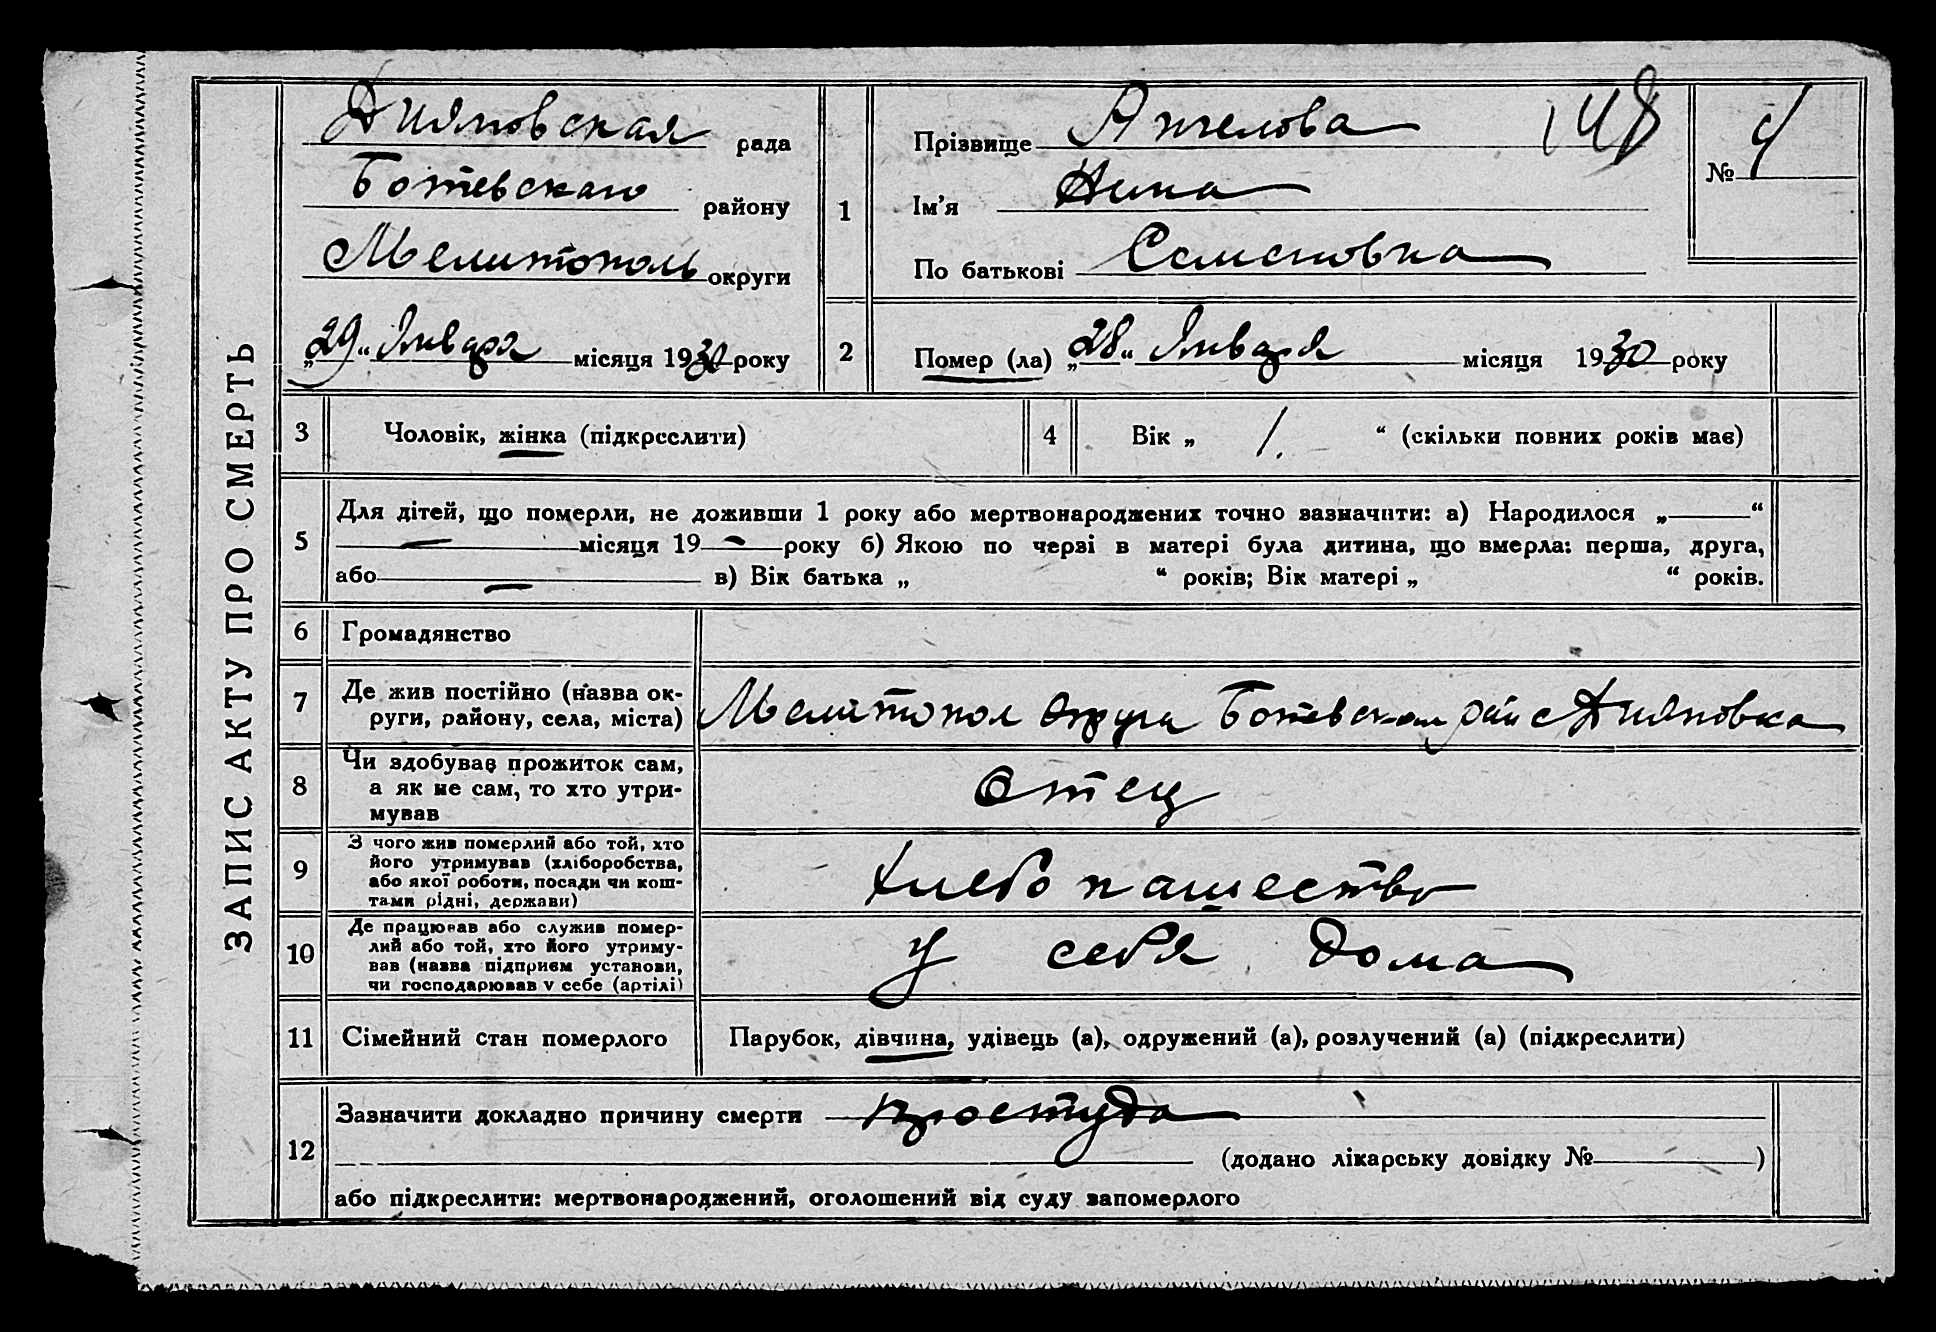 ЗАПИС АКТУ ПРО СМЕРТЬ
Дияновская рада
Ботевскаго району
Мелитополь округи
„29“ Января місяця 1930 року
1
Прізвище Ангелова 148
Ім'я Нина
По батькові Семеновна
№ 4
2
Помер (ла) „28“ Января місяця 1930 року
3 Чоловік, жінка (підкреслити)
4 Вік „ 1. “ (скільки повних років має)
5 Для дітей, що померли, не доживши 1 року або мертвонароджених точно зазначити: а) Народилося „ “
— місяця 19 — року б) Якою по черзі в матері була дитина, що вмерла: перша, друга,
або — в) Вік батька „ “ років; Вік матері „ “ років.
6 Громадянство
7 Де жив постійно (назва ок-
руги, району, села, міста)
Мелитопол округа Ботевском рай с Дияновка
8 Чи здобував прожиток сам,
а як не сам, то хто утри-
мував
Отец
9 З чого жив померлий або той, хто
його утримував (хліборобства,
або якої роботи, посади чи кош-
тами рідні, держави)
Хлебопашество
10 Де працював або служив помер-
лий або той, хто його утриму-
вав (назва підприєм установи,
чи господарював у себе (артілі)
у себя дома
11 Сімейний стан померлого Парубок, дівчина, удівець (а), одружений (а), розлучений (а) (підкреслити)
12 Зазначити докладно причину смерти простуда
(додано лікарську довідку № )
або підкреслити: мертвонароджений, оголошений від суду запомерлого